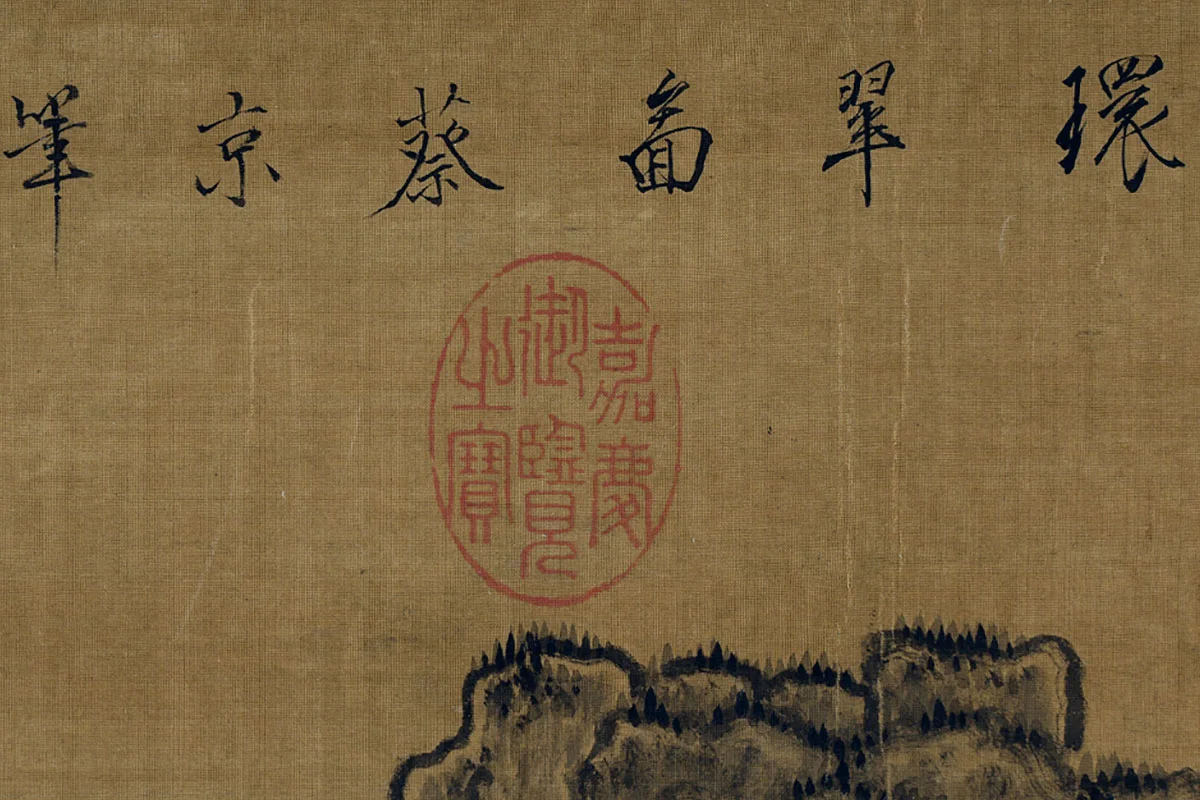 環翠畣蔡京筆
嘉慶
御覽
之寶